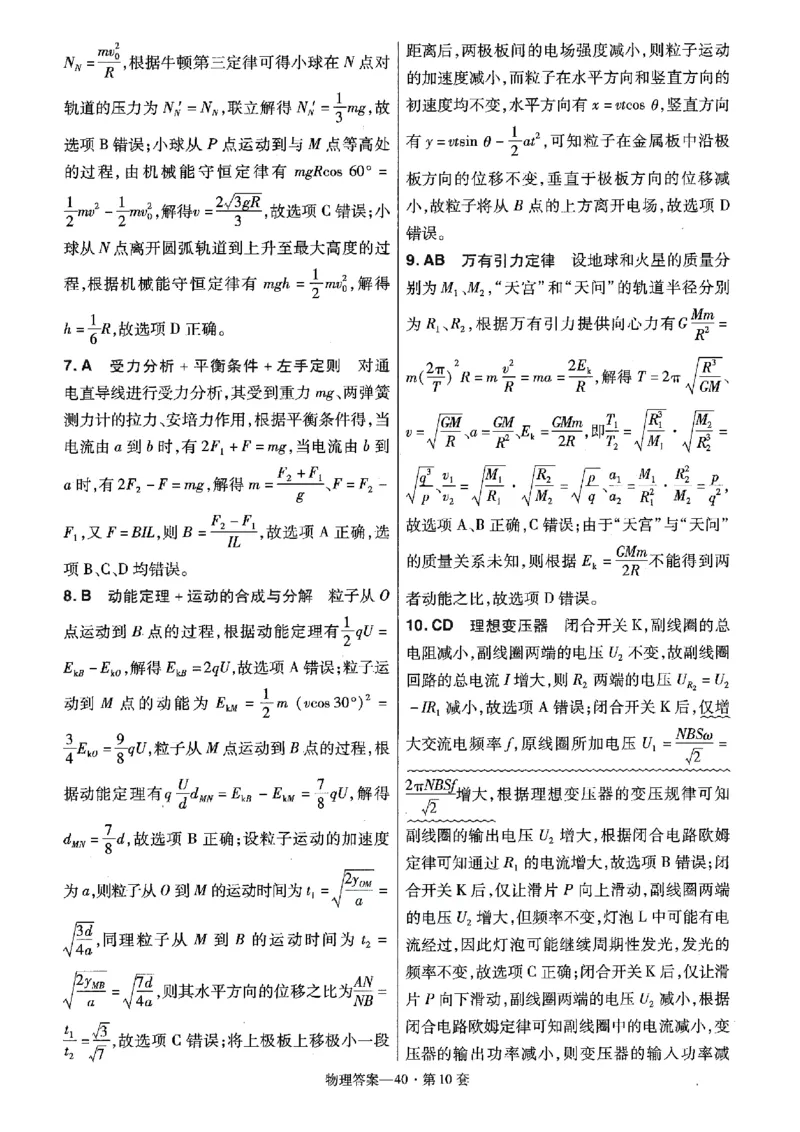 N_N = \frac{mv_0^2}{R},根据牛顿第三定律可得小球在 N 点对
轨道的压力为 N_N' = N_N,联立解得 N_N' = \frac{1}{3}mg,故
选项 B 错误;小球从 P 点运动到与 M 点等高处
的过程,由机械能守恒定律有 mgRcos 60° =
\frac{1}{2}mv^2 - \frac{1}{2}mv_0^2,解得v = \frac{2\sqrt{3gR}}{3},故选项 C 错误;小
球从 N 点离开圆弧轨道到上升至最大高度的过
程,根据机械能守恒定律有 mgh = \frac{1}{2}mv_0^2,解得
h = \frac{1}{6}R,故选项 D 正确。
7. A 受力分析 + 平衡条件 + 左手定则 对通
电直导线进行受力分析,其受到重力 mg、两弹簧
测力计的拉力、安培力作用,根据平衡条件得,当
电流由 a 到 b 时,有 2F_1 + F = mg,当电流由 b 到
a 时,有 2F_2 - F = mg,解得 m = \frac{F_2 + F_1}{g}、F = F_2 -
F_1,又 F = BIL,则 B = \frac{F_2 - F_1}{IL},故选项 A 正确,选
项 B、C、D 均错误。
8. B 动能定理 + 运动的合成与分解 粒子从 O
点运动到 B 点的过程,根据动能定理有\frac{1}{2}qU =
E_{kB} - E_{kO},解得 E_{kB} = 2qU,故选项 A 错误;粒子运
动到 M 点的动能为 E_{kM} = \frac{1}{2}m (vcos 30°)^2 =
\frac{3}{4}E_{kO} = \frac{9}{8}qU,粒子从 M 点运动到 B 点的过程,根
据动能定理有q \frac{U}{d}d_{MN} = E_{kB} - E_{kM} = \frac{7}{8}qU,解得
d_{MN} = \frac{7}{8}d,故选项 B 正确;设粒子运动的加速度
为 a,则粒子从 O 到 M 的运动时间为 t_1 = \sqrt{\frac{2y_{OM}}{a}} =
\sqrt{\frac{3d}{4a}},同理粒子从 M 到 B 的运动时间为 t_2 =
\sqrt{\frac{2y_{MB}}{a}} = \sqrt{\frac{7d}{4a}},则其水平方向的位移之比为\frac{AN}{NB} =
\frac{t_1}{t_2} = \frac{\sqrt{3}}{\sqrt{7}},故选项 C 错误;将上极板上移极小一段
距离后,两极板间的电场强度减小,则粒子运动
的加速度减小,而粒子在水平方向和竖直方向的
初速度均不变,水平方向有 x = vtcos θ,竖直方向
有 y = vtsin θ - \frac{1}{2}at^2,可知粒子在金属板中沿极
板方向的位移不变,垂直于极板方向的位移减
小,故粒子将从 B 点的上方离开电场,故选项 D
错误。
9. AB 万有引力定律 设地球和火星的质量分
别为 M_1、M_2,“天宫”和“天问”的轨道半径分别
为 R_1、R_2,根据万有引力提供向心力有 G\frac{Mm}{R^2} =
m(\frac{2π}{T})^2 R = m\frac{v^2}{R} = ma = \frac{2E_k}{R},解得 T = 2π\sqrt{\frac{R^3}{GM}}、
v = \sqrt{\frac{GM}{R}}、a = \frac{GM}{R^2}、E_k = \frac{GMm}{2R},即\frac{T_1}{T_2} = \sqrt{\frac{R_1^3}{M_1}} · \sqrt{\frac{M_2}{R_2^3}} =
\sqrt{\frac{q^3}{p}}、\frac{v_1}{v_2} = \sqrt{\frac{M_1}{R_1}} · \sqrt{\frac{R_2}{M_2}} = \sqrt{\frac{p}{q}}、\frac{a_1}{a_2} = \frac{M_1}{R_1^2} · \frac{R_2^2}{M_2} = \frac{p}{q^2},
故选项 A、B 正确,C 错误;由于“天宫”与“天问”
的质量关系未知,则根据 E_k = \frac{GMm}{2R}不能得到两
者动能之比,故选项 D 错误。
10. CD 理想变压器 闭合开关 K,副线圈的总
电阻减小,副线圈两端的电压 U_2 不变,故副线圈
回路的总电流 I 增大,则 R_2 两端的电压 U_{R_2} = U_2
- IR_1 减小,故选项 A 错误;闭合开关 K 后,仅增
大交流电频率 f,原线圈所加电压 U_1 = \frac{NBSω}{\sqrt{2}} =
\frac{2πNBSf}{\sqrt{2}}增大,根据理想变压器的变压规律可知
副线圈的输出电压 U_2 增大,根据闭合电路欧姆
定律可知通过 R_1 的电流增大,故选项 B 错误;闭
合开关 K 后,仅让滑片 P 向上滑动,副线圈两端
的电压 U_2 增大,但频率不变,灯泡 L 中可能有电
流经过,因此灯泡可能继续周期性发光,发光的
频率不变,故选项 C 正确;闭合开关 K 后,仅让滑
片 P 向下滑动,副线圈两端的电压 U_2 减小,根据
闭合电路欧姆定律可知副线圈中的电流减小,变
压器的输出功率减小,则变压器的输入功率减
物理答案—40·第 10 套